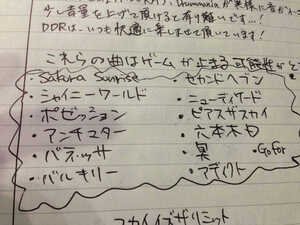 少し音量を上げて頂けると有り難いです…!
DDRは、いつも快適に楽しませて頂いています!
これらの曲はゲームが止まる可能性が
Sakura Sunrise ・セカンドヘブン
・シャイニーワールド ・ニューディサード
・ポゼッション ・ピアスザスカイ
・アンチュター ・六本木
・バネッサ ・晃 ・Gofor
・バルキリー ・アディクト
スカイイズザリミット